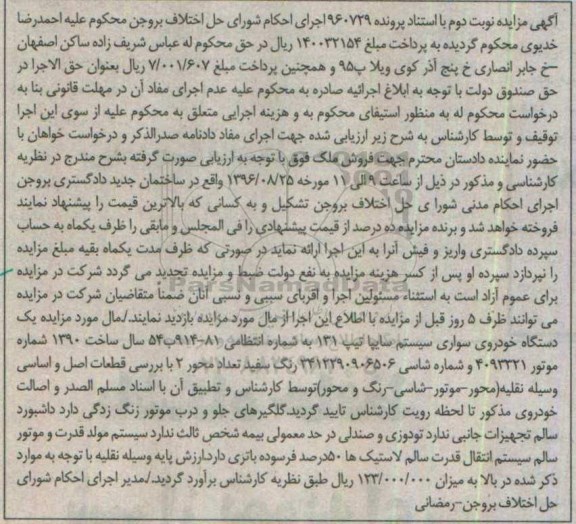 آگهی مزایده نوبت دوم با استناد پرونده ۹۶۰۷۲۹ اجرای احکام شورای حل اختلاف بروجن محکوم علیه احمدرضا
خدیوی محکوم گردیده به پرداخت مبلغ ۱۴۰۰۳۲۱۵۴ ریال در حق محکوم له عباس شریف زاده ساکن اصفهان
-خ جابر انصاری خ پنج آذر کوی ویلا پ۹۵ و همچنین پرداخت مبلغ ۷/۰۰۱/۶۰۷ ریال بعنوان حق الاجرا در
حق صندوق دولت با توجه به ابلاغ اجرائیه صادره به محکوم علیه عدم اجرای مفاد آن در مهلت قانونی بنا به
درخواست محکوم له به منظور استیفای محکوم به و هزینه اجرایی متعلق به محکوم علیه از سوی این اجرا
توقیف و توسط کارشناس به شرح زیر ارزیابی شده جهت اجرای مفاد دادنامه صدرالذکر و درخواست خواهان با
حضور نماینده دادستان محترم جهت فروش ملک فوق با توجه به ارزیابی صورت گرفته بشرح مندرج در نظریه
کارشناسی و مذکور در ذیل از ساعت ۹ الی ۱۱ مورخه ۱۳۹۶/۰۸/۲۵ واقع در ساختمان جدید دادگستری بروجن
اجرای احکام مدنی شورا ی حل اختلاف بروجن تشکیل و به کسانی که بالاترین قیمت را پیشنهاد نمایند
فروخته خواهد شد و برنده مزایده ده درصد از قیمت پیشنهادی را فی المجلس و مابقی را ظرف یکماه به حساب
سپرده دادگستری واریز و فیش آنرا به این اجرا ارائه نماید در صورتی که ظرف مدت یکماه بقیه مبلغ مزایده
را نپردازد سپرده او پس از کسر هزینه مزایده به نفع دولت ضبط و مزایده تجدید می گردد شرکت در مزایده
برای عموم آزاد است به استثناء مسئولین اجرا و اقربای سببی و نسبی آنان ضمنا متقاضیان شرکت در مزایده
می توانند ظرف ۵ روز قبل از مزایده با اطلاع این اجرا از مال مورد مزایده بازدید نمایند./مال مورد مزایده یک
دستگاه خودروی سواری سیستم سایپا تیپ ۱۳۱ به شماره انتظامی ۸۱-۹۱۴ب۵۴ سال ساخت ۱۳۹۰ شماره
موتور ۴۰۹۳۳۲۱ و شماره شاسی ۳۴۱۲۲۹۰۹۰۶۵۰۶ رنگ سفید تعداد محور ۲ با بررسی قطعات اصل و اساسی
وسیله نقلیه(محور-موتور-شاسی-رنگ و محور)توسط کارشناس و تطبیق آن با اسناد مسلم الصدر و اصالت
خودروی مذکور تا لحظه رویت کارشناس تایید گردید.گلگیرهای جلو و درب موتور زنگ زدگی دارد داشبورد
سالم تجهیزات جانبی ندارد تودوزی و صندلی در حد معمولی بیمه شخص ثالث ندارد سیستم مولد قدرت و موتور
سالم سیستم انتقال قدرت سالم لاستیک ها ۵۰درصد فرسوده باتری دارد.ارزش پایه وسیله نقلیه با توجه به موارد
ذکر شده در بالا به میزان ۱۲۳/۰۰۰/۰۰۰ ریال طبق نظریه کارشناس برآورد گردید./مدیر اجرای احکام شورای
حل اختلاف بروجن-رمضانی
ParsNamadData